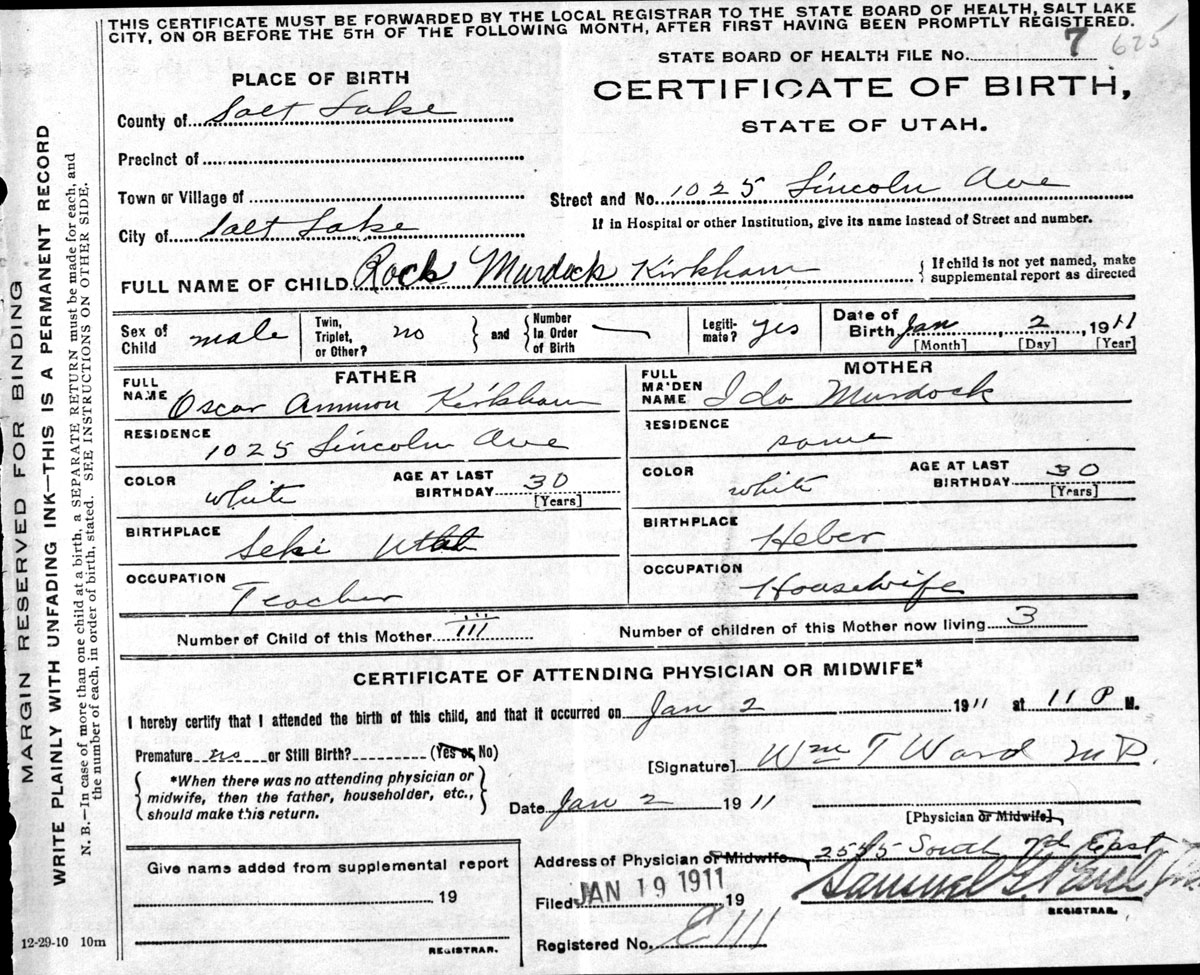 THIS CERTIFICATE MUST BE FORWARDED BY THE LOCAL REGISTRAR TO THE STATE BOARD OF HEALTH, SALT LAKE
CITY, ON OR BEFORE THE 5TH OF THE FOLLOWING MONTH, AFTER FIRST HAVING BEEN PROMPTLY REGISTERED.
STATE BOARD OF HEALTH FILE No. 7 625
PLACE OF BIRTH
CERTIFICATE OF BIRTH,
STATE OF UTAH.
County of Salt Lake
Precinct of
Town or Village of
Street and No. 1025 Lincoln Ave
City of Salt Lake
If in Hospital or other Institution, give its name instead of Street and number.
FULL NAME OF CHILD Rock Murdock Kirkham
If child is not yet named, make
supplemental report as directed
Sex of Child male
Twin, Triplet, or Other? no
and Number In Order of Birth
Legiti-mate? yes
Date of Birth Jan, 2, 1911
[Month] [Day] [Year]
FATHER
MOTHER
FULL NAME Oscar Ammon Kirkham
FULL MAIDEN NAME Ida Murdock
RESIDENCE 1025 Lincoln Ave
RESIDENCE same
COLOR white
AGE AT LAST BIRTHDAY 30 [Years]
COLOR white
AGE AT LAST BIRTHDAY 30 [Years]
BIRTHPLACE Utah
BIRTHPLACE Heber
OCCUPATION Teacher
OCCUPATION Housewife
Number of Child of this Mother III
Number of children of this Mother now living 3
CERTIFICATE OF ATTENDING PHYSICIAN OR MIDWIFE*
I hereby certify that I attended the birth of this child, and that it occurred on Jan 2 1911 at 11 P M.
Premature no or Still Birth? (Yes or No)
[Signature] Wm T Ward MD.
*When there was no attending physician or
midwife, then the father, householder, etc.,
should make this return.
Date Jan 2 1911
[Physician or Midwife]
Give name added from supplemental report
19
REGISTRAR.
Address of Physician or Midwife South East
Filed JAN 19 1911 19
REGISTRAR.
Registered No.
12-29-10 10m
MARGIN RESERVED FOR BINDING
WRITE PLAINLY WITH UNFADING INK—THIS IS A PERMANENT RECORD
N. B.—In case of more than one child at a birth, a SEPARATE RETURN must be made for each, and
the number of each, in order of birth, stated. SEE INSTRUCTIONS ON OTHER SIDE.